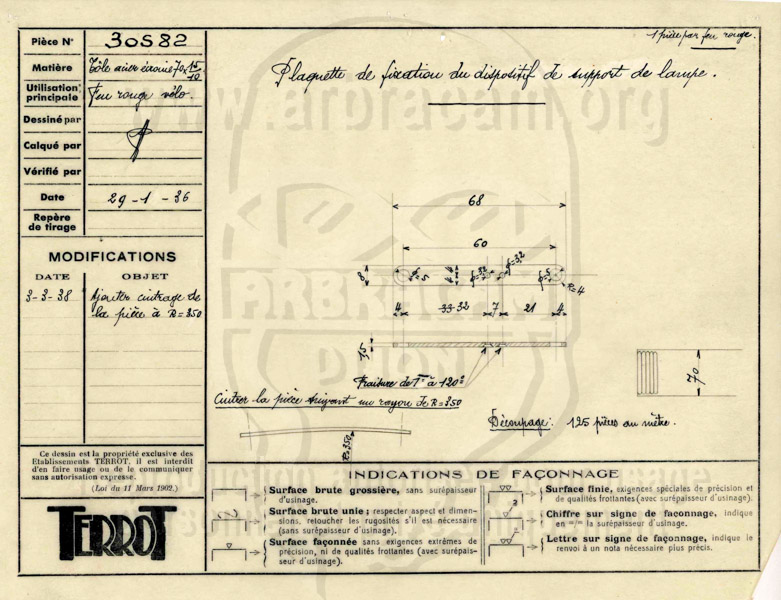 Pièce N° 30S82
Matière Tôle acier écrouie 70x15/10
Utilisation principale Feu rouge vélo.
Dessiné par
Calqué par
Vérifié par
Date 29-1-36
Repère de tirage
MODIFICATIONS
DATE OBJET
3-3-38 Ajouter cintrage de
la pièce à R=350
Ce dessin est la propriété exclusive des
Etablissements TERROT, il est interdit
d'en faire usage ou de le communiquer
sans autorisation expresse.
(Loi du 11 Mars 1902.)
TERROT
1 pièce par feu rouge.
Plaquette de fixation du dispositif de support de lampe.
www.arbracam.org
68
60
8
ø=5
ø=3,2
ø=5
R=4
4 33-32 7 21 4
1,5
Fraisure de 1 à 120°
ARBRACAM
DIJON
Cintrer la pièce suivant un rayon de R=350
R=350
70
Découpage: 125 pièces au mètre.
INDICATIONS DE FAÇONNAGE
Surface brute grossière, sans surépaisseur
d'usinage.
Surface brute unie; respecter aspect et dimen-
sions, retoucher les rugosités s'il est nécessaire
(sans surépaisseur d'usinage).
Surface façonnée sans exigences extrêmes de
précision, ni de qualités frottantes (avec surépais-
seur d'usinage).
Surface finie, exigences spéciales de précision et
de qualités frottantes (avec surépaisseur d'usinage).
Chiffre sur signe de façonnage, indique
en m/m la surépaisseur d'usinage.
Lettre sur signe de façonnage, indique le
renvoi à un nota nécessaire plus précis.